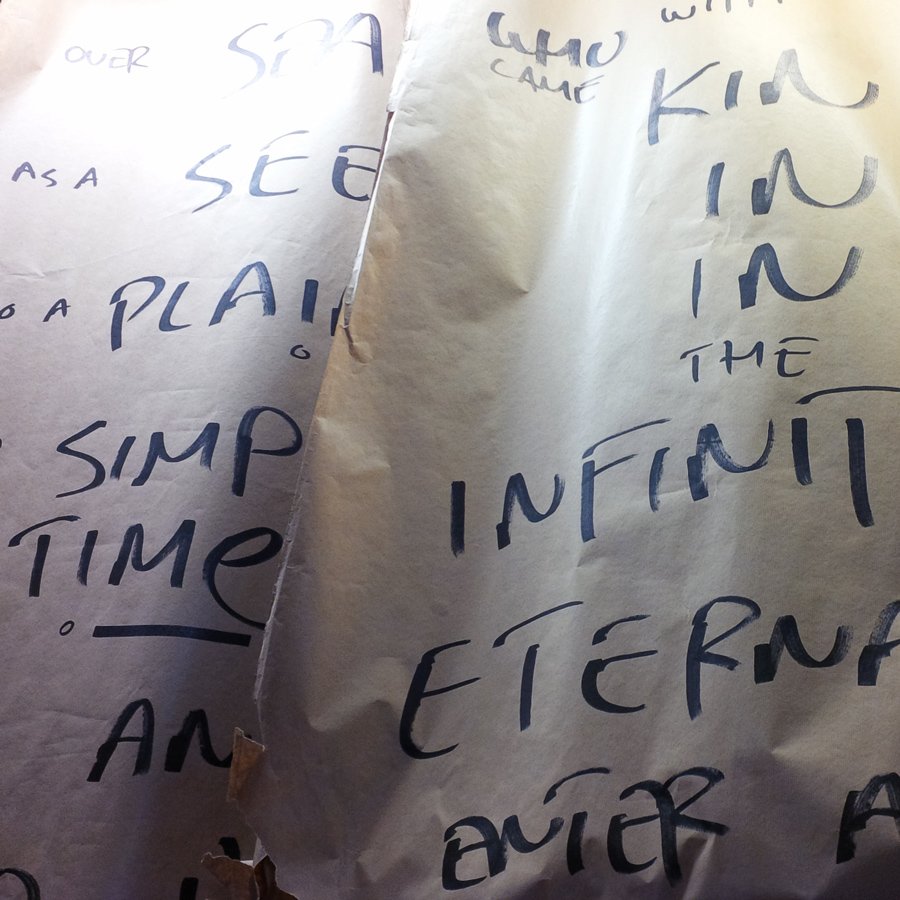 OVER SPA
AS A SEE
O A PLAI
SIMP
TIMe
AN
WHO
CAME
KIN
IN
IN
THE
INFINIT
ETERNA
ENTER A